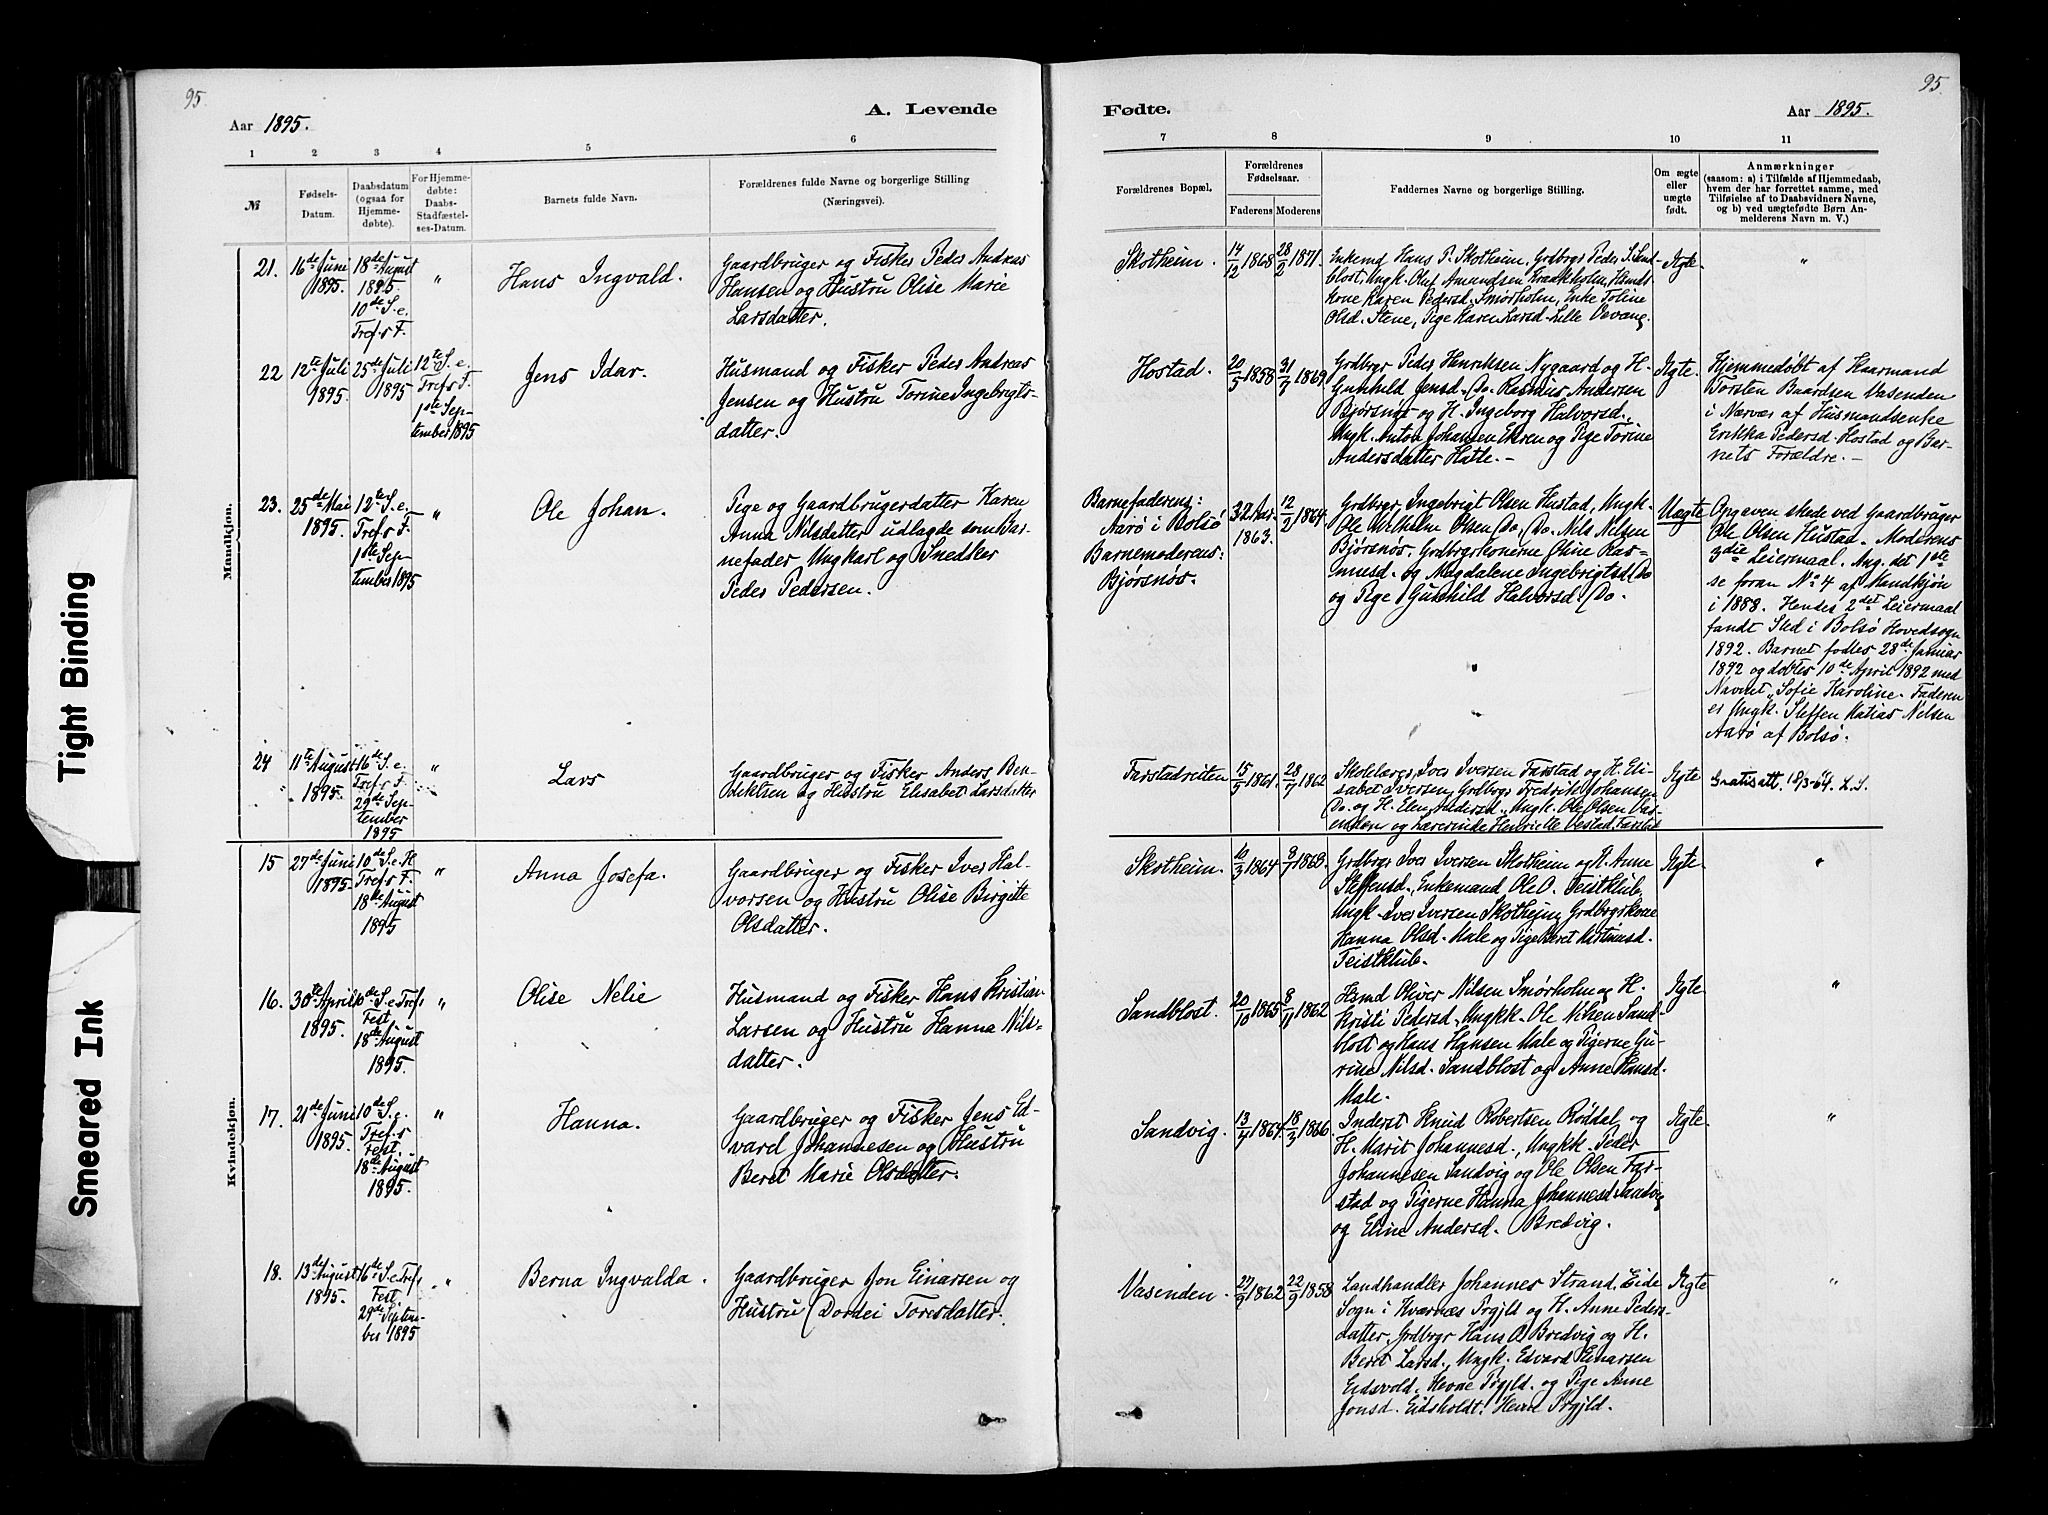 95
95
A. Levende
Fødte.
Aar 1895.
Aar 1895.
1 2 3 4 5 6
7 8 9 10 11
№
Fødsels-
Datum.
Daabsdatum
(ogsaa for
Hjemme-
døbte).
For Hjemme-
døbte:
Daabs-
Stadfæstel-
ses-Datum.
Barnets fulde Navn.
Forældrenes fulde Navne og borgerlige Stilling
(Næringsvei).
Forældrenes Bopæl.
Forældrenes
Fødselsaar.
Faderens Moderens
Faddernes Navne og borgerlige Stilling.
Om ægte
eller
uægte
født.
Anmærkninger
(saasom: a) i Tilfælde af Hjemmedaab,
hvem der har forrettet samme, med
Tilføielse af to Daabsvidners Navne,
og b) ved uægtefødte Børn An-
melderens Navn m. V.)
Mandkjøn.
21.
16de Juni
1895.
18de August
1895.
10de S. e.
Tref.s F.
"
Hans Ingvald.
Gaardbruger og Fisker Peder Andreas
Hansen og Hustru Olise Marie
Larsdatter.
Skotheim.
14/12 1868
28/2 1871.
Enkemd Hans P. Skotheim, Grdbrgr Peder S. Sand-
blost, Ungk. Oluf Amundsen Kraakholm, Hmds-
kone Karen Pedersd. Smørholm, Enke Toline
Olsd. Stene, Pige Karen Larsd. Lille Vevang.
Ægte.
"
22
12te Juli
1895.
25de Juli
1895
12te S. e.
Tref.s F.
1ste Sep-
tember 1895
Jens Idar.
Husmand og Fisker Peder Andreas
Jensen og Hustru Torine Ingebrigts-
datter.
Hostad.
20/5 1858
31/7 1869
Grdbrgr Peder Henriksen Nygaard og H.
Gunhild Jensd. Do. Rasmus Andersen
Bjørsnøs og H. Ingeborg Halvorsd.
Ungk. Anton Johansen Ekren og Pige Torine
Andersdatter Hatle. –
Ægte.
Hjemmedøbt af Kaarmand
Torsten Baardsen Vasenden
i Nærvær af Husmandsenke
Erikka Pedersd. Hostad og Bar-
nets Forældre. –
23.
25de Mai
1895.
12te S. e.
Tref.s F.
1ste Sep-
tember 1895
"
Ole Johan.
Pige og Gaardbrugerdatter Karen
Anna Nilsdatter udlagde som Bar-
nefader Ungkarl og Snedker
Peder Pedersen.
Barnefaderens:
Aarø i Bolsø
Barnemoderens:
Bjørsnøs.
32 Aar.
1863.
12/2 1864.
Grdbrgr, Ingebrigt Olsen Hustad, Ungk.
Ole Vilhelm Olsen Do, Do. Nils Nilsen
Bjørsnøs. Grdbrgrkonerne Oline Ras-
musd. og Magdalene Ingebrigtsd. Do
og Pige Gunhild Halvorsd. Do.
Uægte
Opgaven skede ved Gaardbruger
Ole Olsen Hustad. Moderens
3die Leiermaal. Ang. det 1ste
se foran No 4 af Mandkjøn
i 1888. Hendes 2det Leiermaal
fandt Sted i Bolsø Hovedsogn
1892. Barnet fødtes 28de Januar
1892 og døbtes 10de April 1892 med
Navnet „Sofie Karoline. Faderen
er Ungk. Steffen Matias Nilsen
Aarø af Bolsø.
24
11te August
1895.
16de S. e.
Tref.s F.
29de Sep-
tember
1895
"
Lars
Gaardbruger og Fisker Anders Ben-
diktsen og Hustru Elisabet Larsdatter
Farstadreiten
15/5 1861.
28/7 1862
Skolelærer Iver Iversen Farstad og H. Eli-
sabet Iversen, Grdbrgr Fredrik Johansen
Do. og H. Elen Andersd., Ungk. Ole Olsen Vas-
enden og Lærerinde Henriette Vestad, Farstad
Ægte
Gratisatt. 18/3-64. L.S.
Kvindekjøn.
15
27de Juni
1895.
10de S. e. H.
Tref.s F.
18de August
1895
"
Anna Josefa.
Gaardbruger og Fisker Iver Hal-
vorsen og Hustru Olise Birgitte
Olsdatter.
Skotheim.
10/3 1864
3/7 1863.
Grdbrgr Iver Iversen Skotheim og H. Anne
Steffensd., Enkemand Ole O. Teistklub,
Ungk. Iver Iversen Skotheim, Grdbrgrkone
Hanna Olsd. Male og Pige Beret Kristinusd.
Teistklub.
Ægte.
"
16.
30te April
1895.
10de S. e. Tref.
Fest
18de August
1895.
"
Olise Nelie
Husmand og Fisker Hans Kristian
Larsen og Hustru Hanna Nils-
datter.
Sandblost.
20/10 1865
8/11 1862
Hsmd Oliver Nilsen Smørholm og H.
Kristi Pedersd. Ungkk. Ole Nilsen Sand-
blost og Hans Hansen Male og Pigerne Gu-
rine Nilsd. Sandblost og Anne Hansd.
Male.
Ægte
"
17.
21de Juni
1895.
10de S. e.
Tref.s
Fest.
18de August
1895.
"
Hanna.
Gaardbruger og Fisker Jens Ed-
vard Johannesen og Hustru
Beret Marie Olsdatter.
Sandvig.
13/4 1864.
18/3 1866.
Inderst Knud Robertsen Røddal og
H. Marit Johannesd., Ungkk. Peder
Johannesen Sandvig og Ole Olsen Far-
stad og Pigerne Hanna Johannesd. Sandvig
og Eline Andersd. Bredvig.
Ægte
"
18.
13de August
1895.
16de S. e. Tref.
Fest.
29de Septem-
ber 1895
"
Berna Ingvalda.
Gaardbruger Jon Einarsen og
Hustru Dordei Toresdatter.
Vasenden.
27/9 1862
22/9 1858
Landhandler Johannes Strand. Eide
Sogn i Kværnes Prgjld og H. Anne Peders-
datter, Grdbrgr Hans O. Bredvig og H.
Beret Larsd., Ungk. Edvard Einarsen
Eidsvold, Hevne Prgjld. og Pige Anne
Jonsd. Eidsholdt. Hevne Prgjld.
Ægte
"
Tight Binding
Smeared Ink